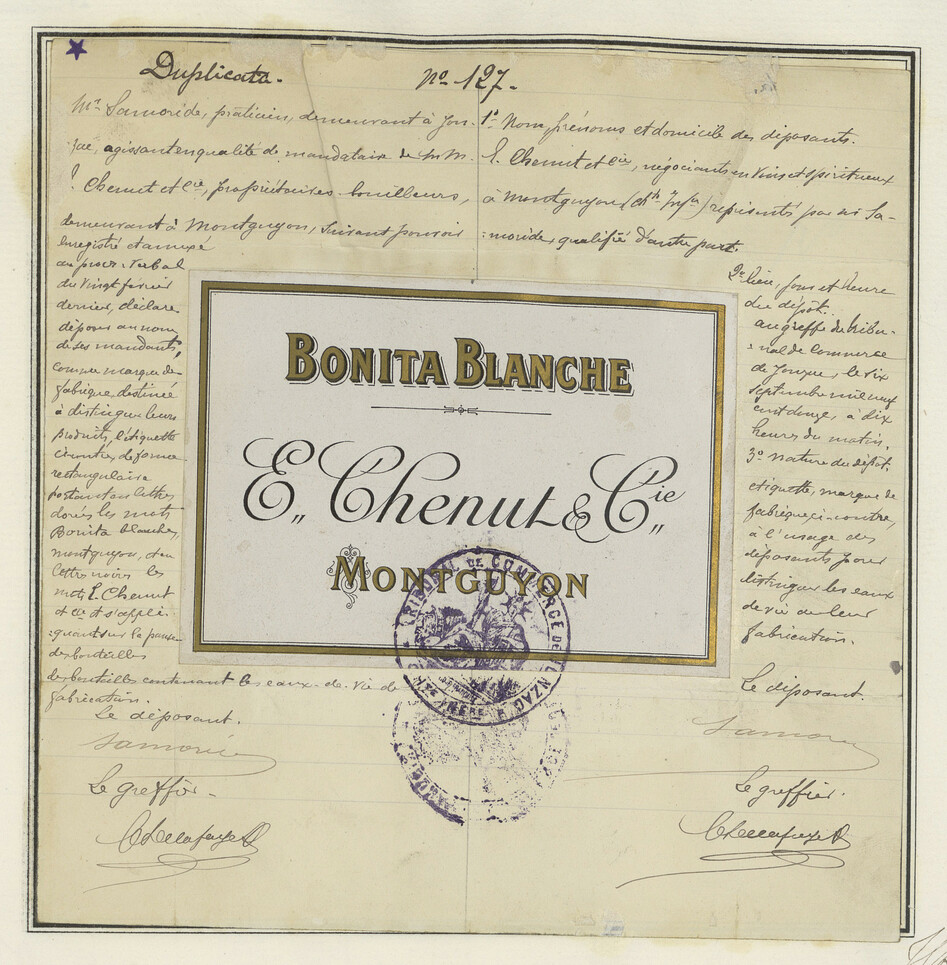 Duplicata.
No. 127.
Mr Samoride, praticien, demeurant à Jon-
zac, agissant en qualité de mandataire de M.M.
E. Chenut et Cie, propriétaires bouilleurs,
demeurant à Montguyon, suivant pouvoir
enregistré et annexé
au procès-verbal
du vingt février
dernier, déclare
déposer au nom
de ses mandants,
comme marque de
fabrique, destinée
à distinguer leurs
produits, l'étiquette
ci-contre, de forme
rectangulaire
portant en lettres
dorées les mots
Bonita blanche,
Montguyon, et en
lettres noires les
mots E. Chenut
et Cie et s'appli-
quant sur la panse
des bouteilles
des bouteilles contenant les eaux-de-vie de
fabrication.
Le déposant.
Le greffier.
1o Nom, prénoms et domicile des déposants.
E. Chenut et Cie, négociants en vins et spiritueux
à Montguyon (Chte Infre) représentés par Mr Sa-
moride, qualifié d'autre part.
2o Lieu, jour et heure
du dépôt.
au greffe du tribu-
nal de Commerce
de Jonzac, le six
septembre mil neuf
cent douze, à dix
heures du matin.
3o Nature du dépôt.
étiquette, marque de
fabrique ci-contre,
à l'usage des
déposants pour
distinguer les eaux
de vie de leur
fabrication.
Le déposant.
Le greffier.
BONITA BLANCHE
E. Chenut & Cie
MONTGUYON
TRIBUNAL DE COMMERCE DE JONZAC